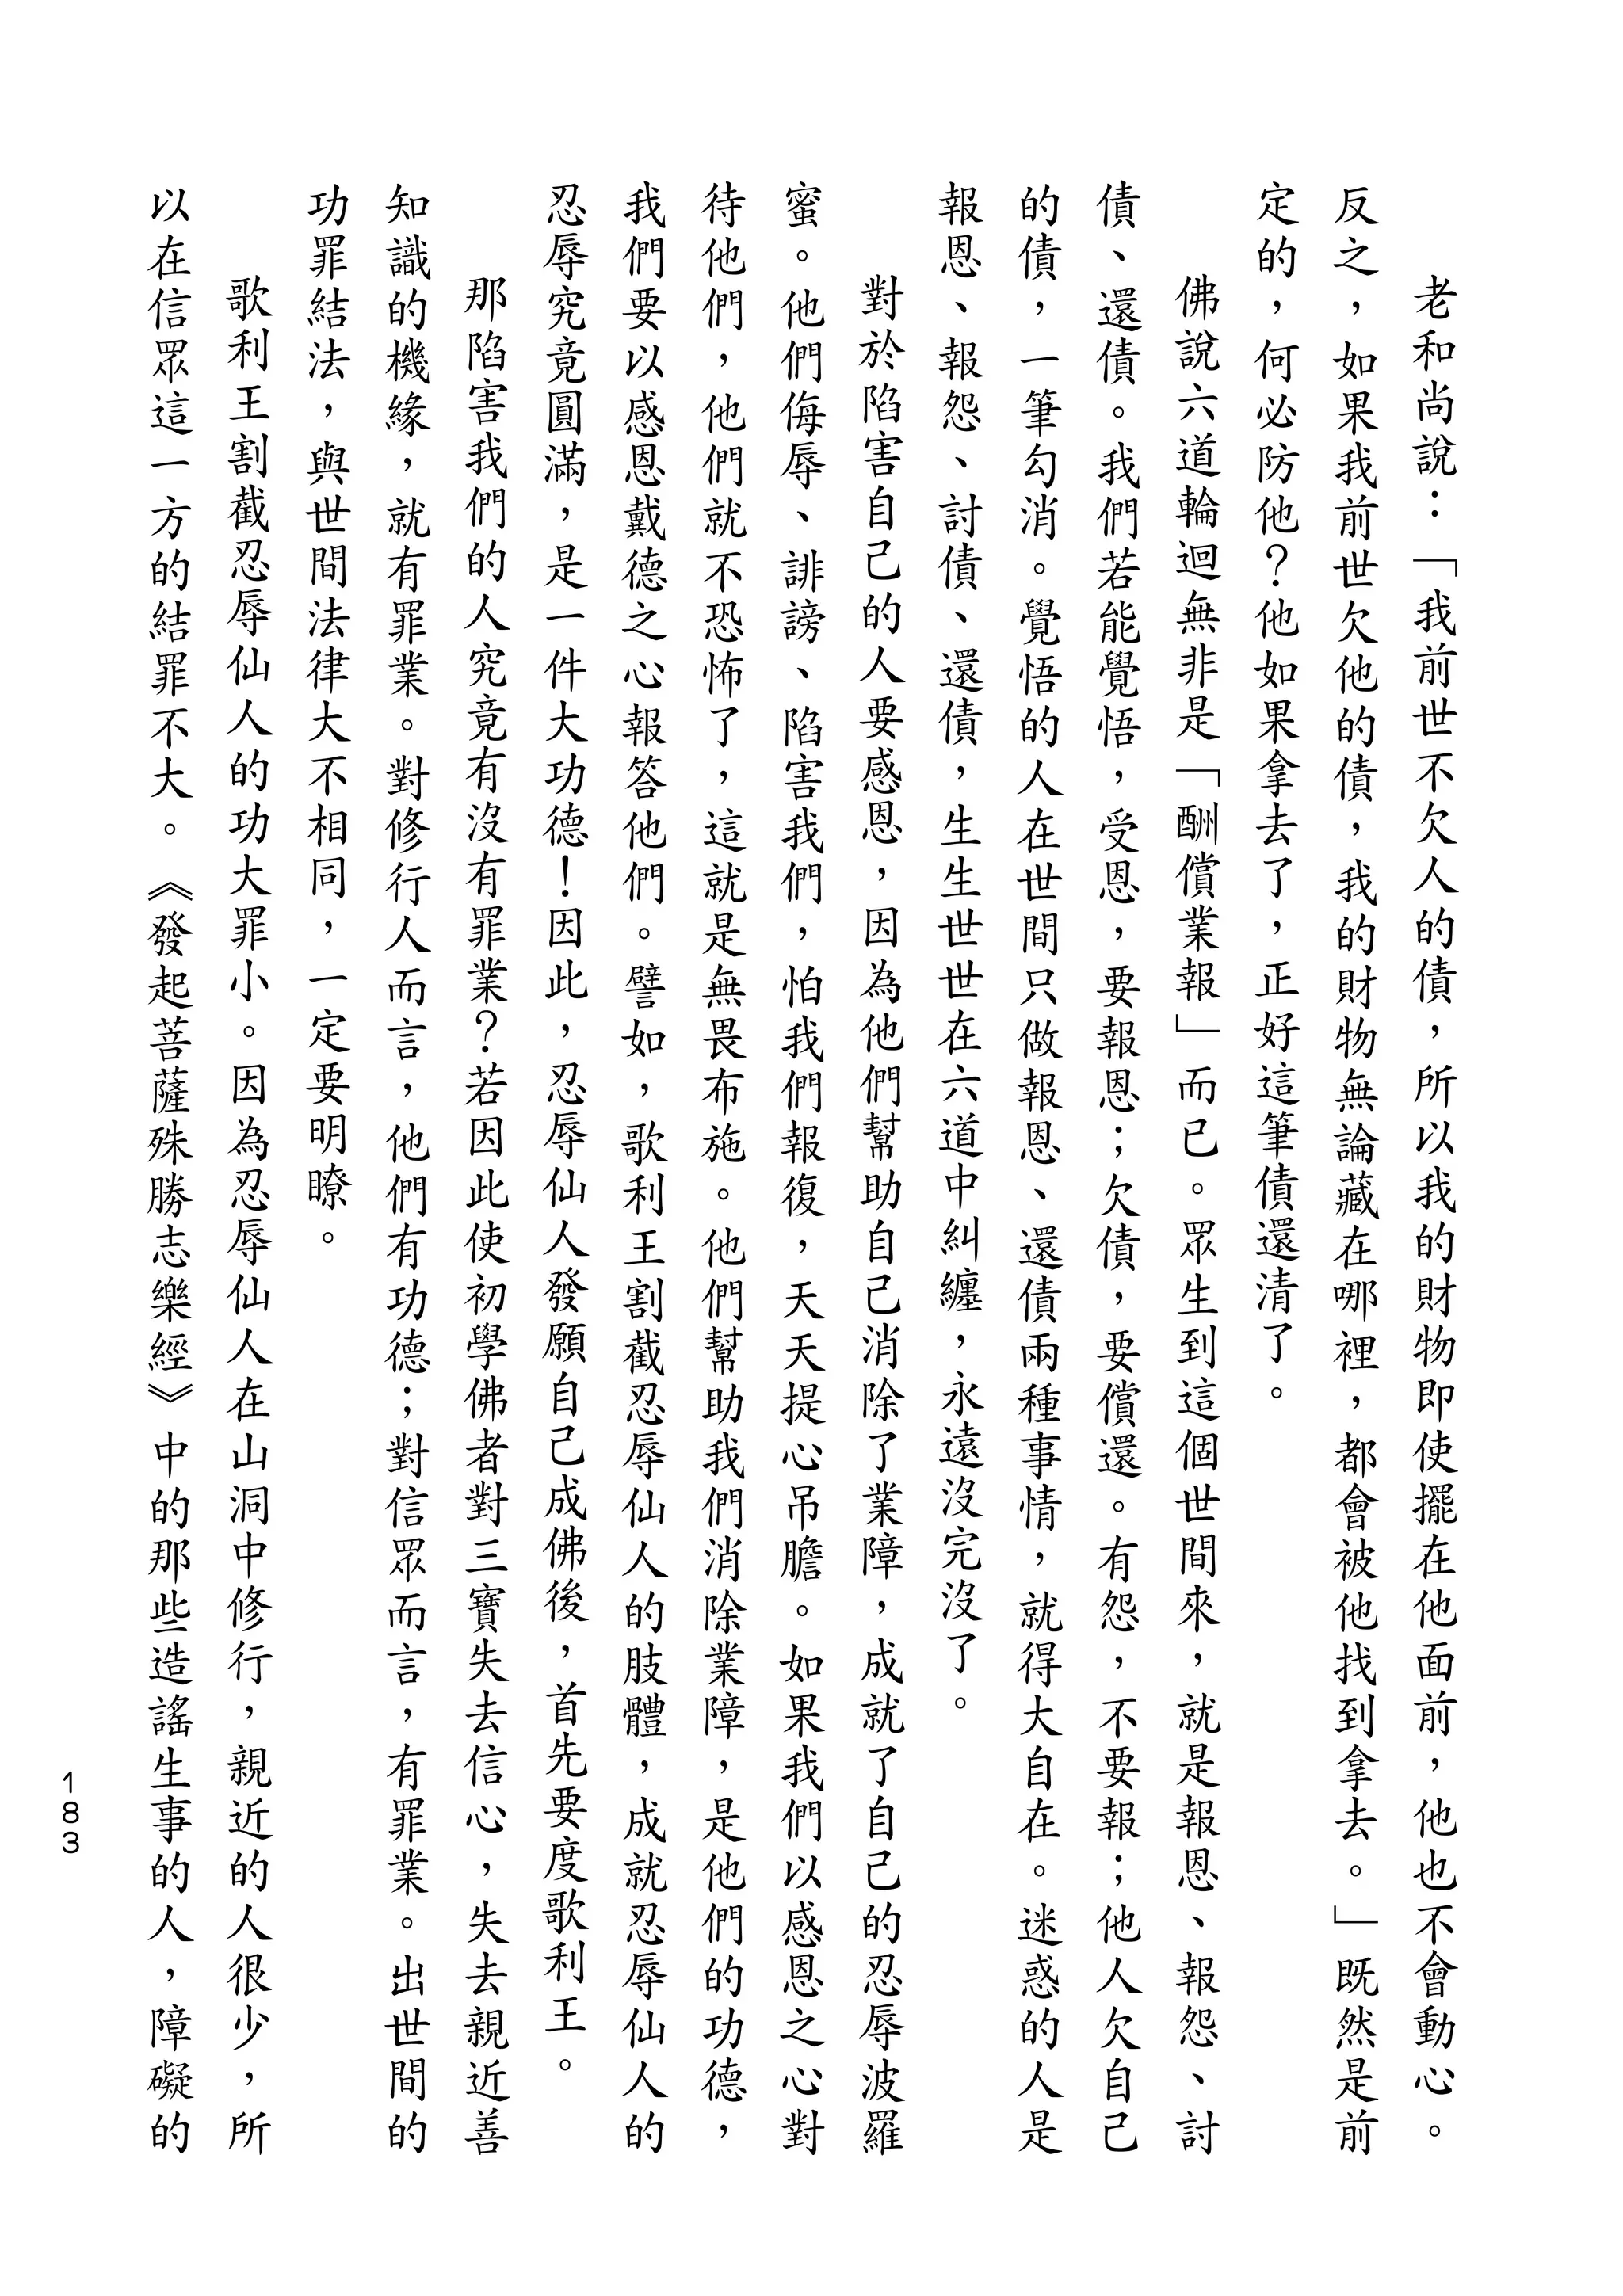 老和尚說：「我前世不欠人的債，所以我的財物即使擺在他面前，他也不會動心。
反之，如果我前世欠他的債，我的財物無論藏在哪裡，都會被他找到拿去。」既然是前
定的，何必防他？他如果拿去了，正好這筆債還清了。
佛說六道輪迴無非是「酬償業報」而已。眾生到這個世間來，就是報恩、報怨、討
債、還債。我們若能覺悟，受恩，要報恩；欠債，要償還。有怨，不要報；他人欠自己
的債，一筆勾消。覺悟的人在世間只做報恩、還債兩種事情，就得大自在。迷惑的人是
報恩、報怨、討債、還債，生生世世在六道中糾纏，永遠沒完沒了。
對於陷害自己的人要感恩，因為他們幫助自己消除了業障，成就了自己的忍辱波羅
蜜。他們侮辱、誹謗、陷害我們，怕我們報復，天天提心吊膽。如果我們以感恩之心對
待他們，他們就不恐怖了，這就是無畏布施。他們幫助我們消除業障，是他們的功德，
我們要以感恩戴德之心報答他們。譬如，歌利王割截忍辱仙人的肢體，成就忍辱仙人的
忍辱究竟圓滿，是一件大功德！因此，忍辱仙人發願自己成佛後，首先要度歌利王。
那陷害我們的人究竟有沒有罪業？若因此使初學佛者對三寶失去信心，失去親近善
知識的機緣，就有罪業。對修行人而言，他們有功德；對信眾而言，有罪業。出世間的
功罪結法，與世間法律大不相同，一定要明瞭。
歌利王割截忍辱仙人的功大罪小。因為忍辱仙人在山洞中修行，親近的人很少，所
以在信眾這一方的結罪不大。《發起菩薩殊勝志樂經》中的那些造謠生事的人，障礙的
183